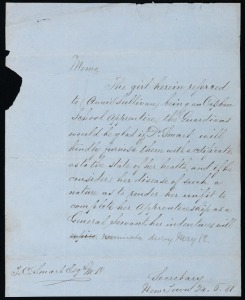 Memo,
The girl herein referred
to, Annie Sullivan, being an Orphan
School Apprentice, the Guardians
would be glad if Dr Smart will
kindly furnish them with a Certificate
as to the state of her health, and if he
considers her disease of such a
nature as to render her unfit to
complete her Apprenticeship as a
General Servant her indentures will
Secretary
New Town 24. 5. 81
T. C. Smart Esq M.D.